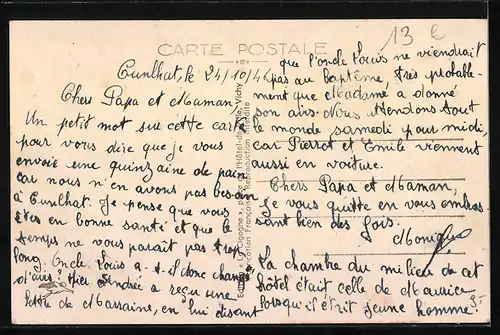 13 €
CARTE POSTALE
Cunlhat, le 24/10/46
Chers Papa et Maman,
Un petit mot sur cette carte
pour vous dire que je vous
envoie une quinzaine de pain
car nous n'en avons pas besoin
à Cunlhat. Je pense que vous
êtes en bonne santé et que le
temps ne vous paraît pas trop
long. Oncle Louis a-t-il donc changé
d'avis? Hier Andrée a reçu une
lettre de Marraine, en lui disant
que l'oncle Louis ne viendrait
pas au baptême, très probable-
ment que Madame a donné
son avis. Nous attendons tout
le monde samedi pour midi,
car Pierrot et Emile viennent
aussi en voiture.
Chers Papa et Maman,
Je vous quitte en vous embras-
sant bien des fois.
Monique
La chambre du milieu de cet
hôtel était celle de Maurice
lorsqu'il était jeune homme.
"La Cigogne", place de l'Hôtel-de-Ville, Vichy
Fabrication Française - Reproduction interdite